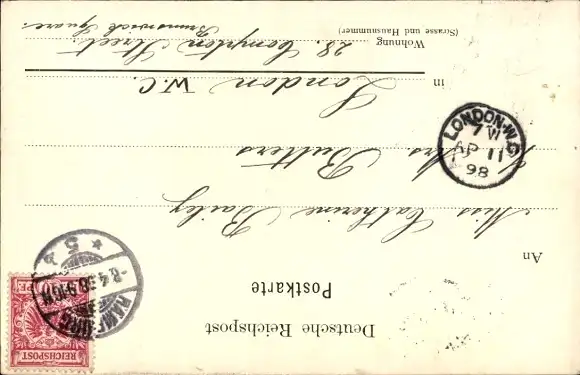 Deutsche Reichspost
Postkarte
An
Miss Catherine Bailey
Mrs. Butters
in
London W.C.
Wohnung
(Strasse und Hausnummer)
28. Compton Street.
Brunswick Square.
LONDON·W.C
7 W
AP 11
98
HAMBURG
5
REICHSPOST